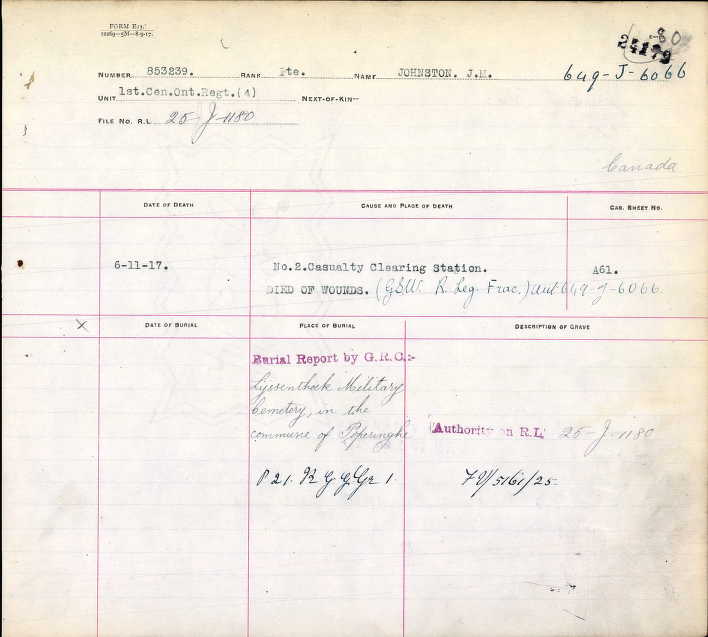 FORM E13.
10269—5M—8-9-17.
24179
NUMBER 853239. RANK Pte. NAME JOHNSTON. J.M. 649-J-6066
UNIT 1st.Cen.Ont.Regt.(4) NEXT-OF-KIN—
FILE NO. R.L. 25-J-1180
Canada
DATE OF DEATH CAUSE AND PLACE OF DEATH CAS. SHEET NO.
6-11-17. No.2.Casualty Clearing Station. A61.
DIED OF WOUNDS. (G.S.W. R. Leg. Frac.) Aut 649-J-6066
X DATE OF BURIAL PLACE OF BURIAL DESCRIPTION OF GRAVE
Burial Report by G.R.C:-
Lyssenthoek Military
Cemetery, in the
commune of Poperinghe
Authority on R.L. 25-J-1180
P 21. R G G Gr 1.